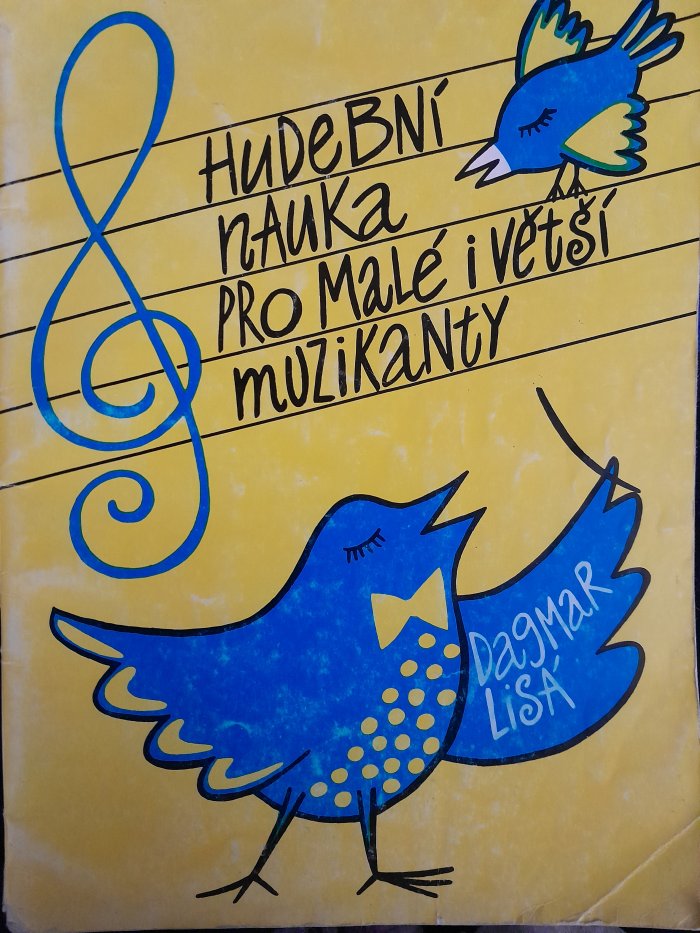 HUDEBNÍ
NAUKA
PRO MALÉ i VĚTŠÍ
MUZIKANTY
DAGMAR
LISÁ